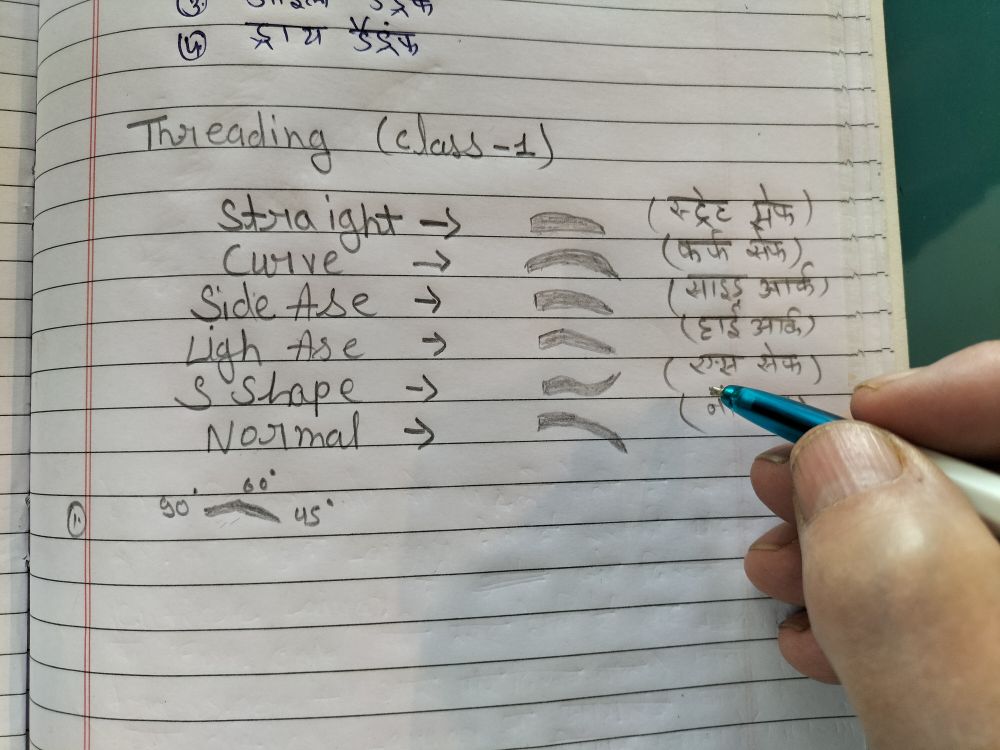 ड्राय डेंड्रंफ
Threading (class-1)
Straight → (स्ट्रेट सेफ)
Curve → (कर्फ सेफ)
Side Ase → (साइड आर्क)
Ligh Ase → (हाई आर्क)
S Shape → (एस सेफ)
Normal →
60°
1. 90° 45°